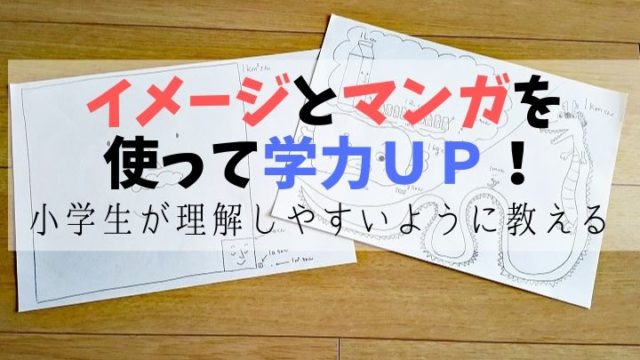 イメージとマンガを
使って学力UP！
小学生が理解しやすいように教える